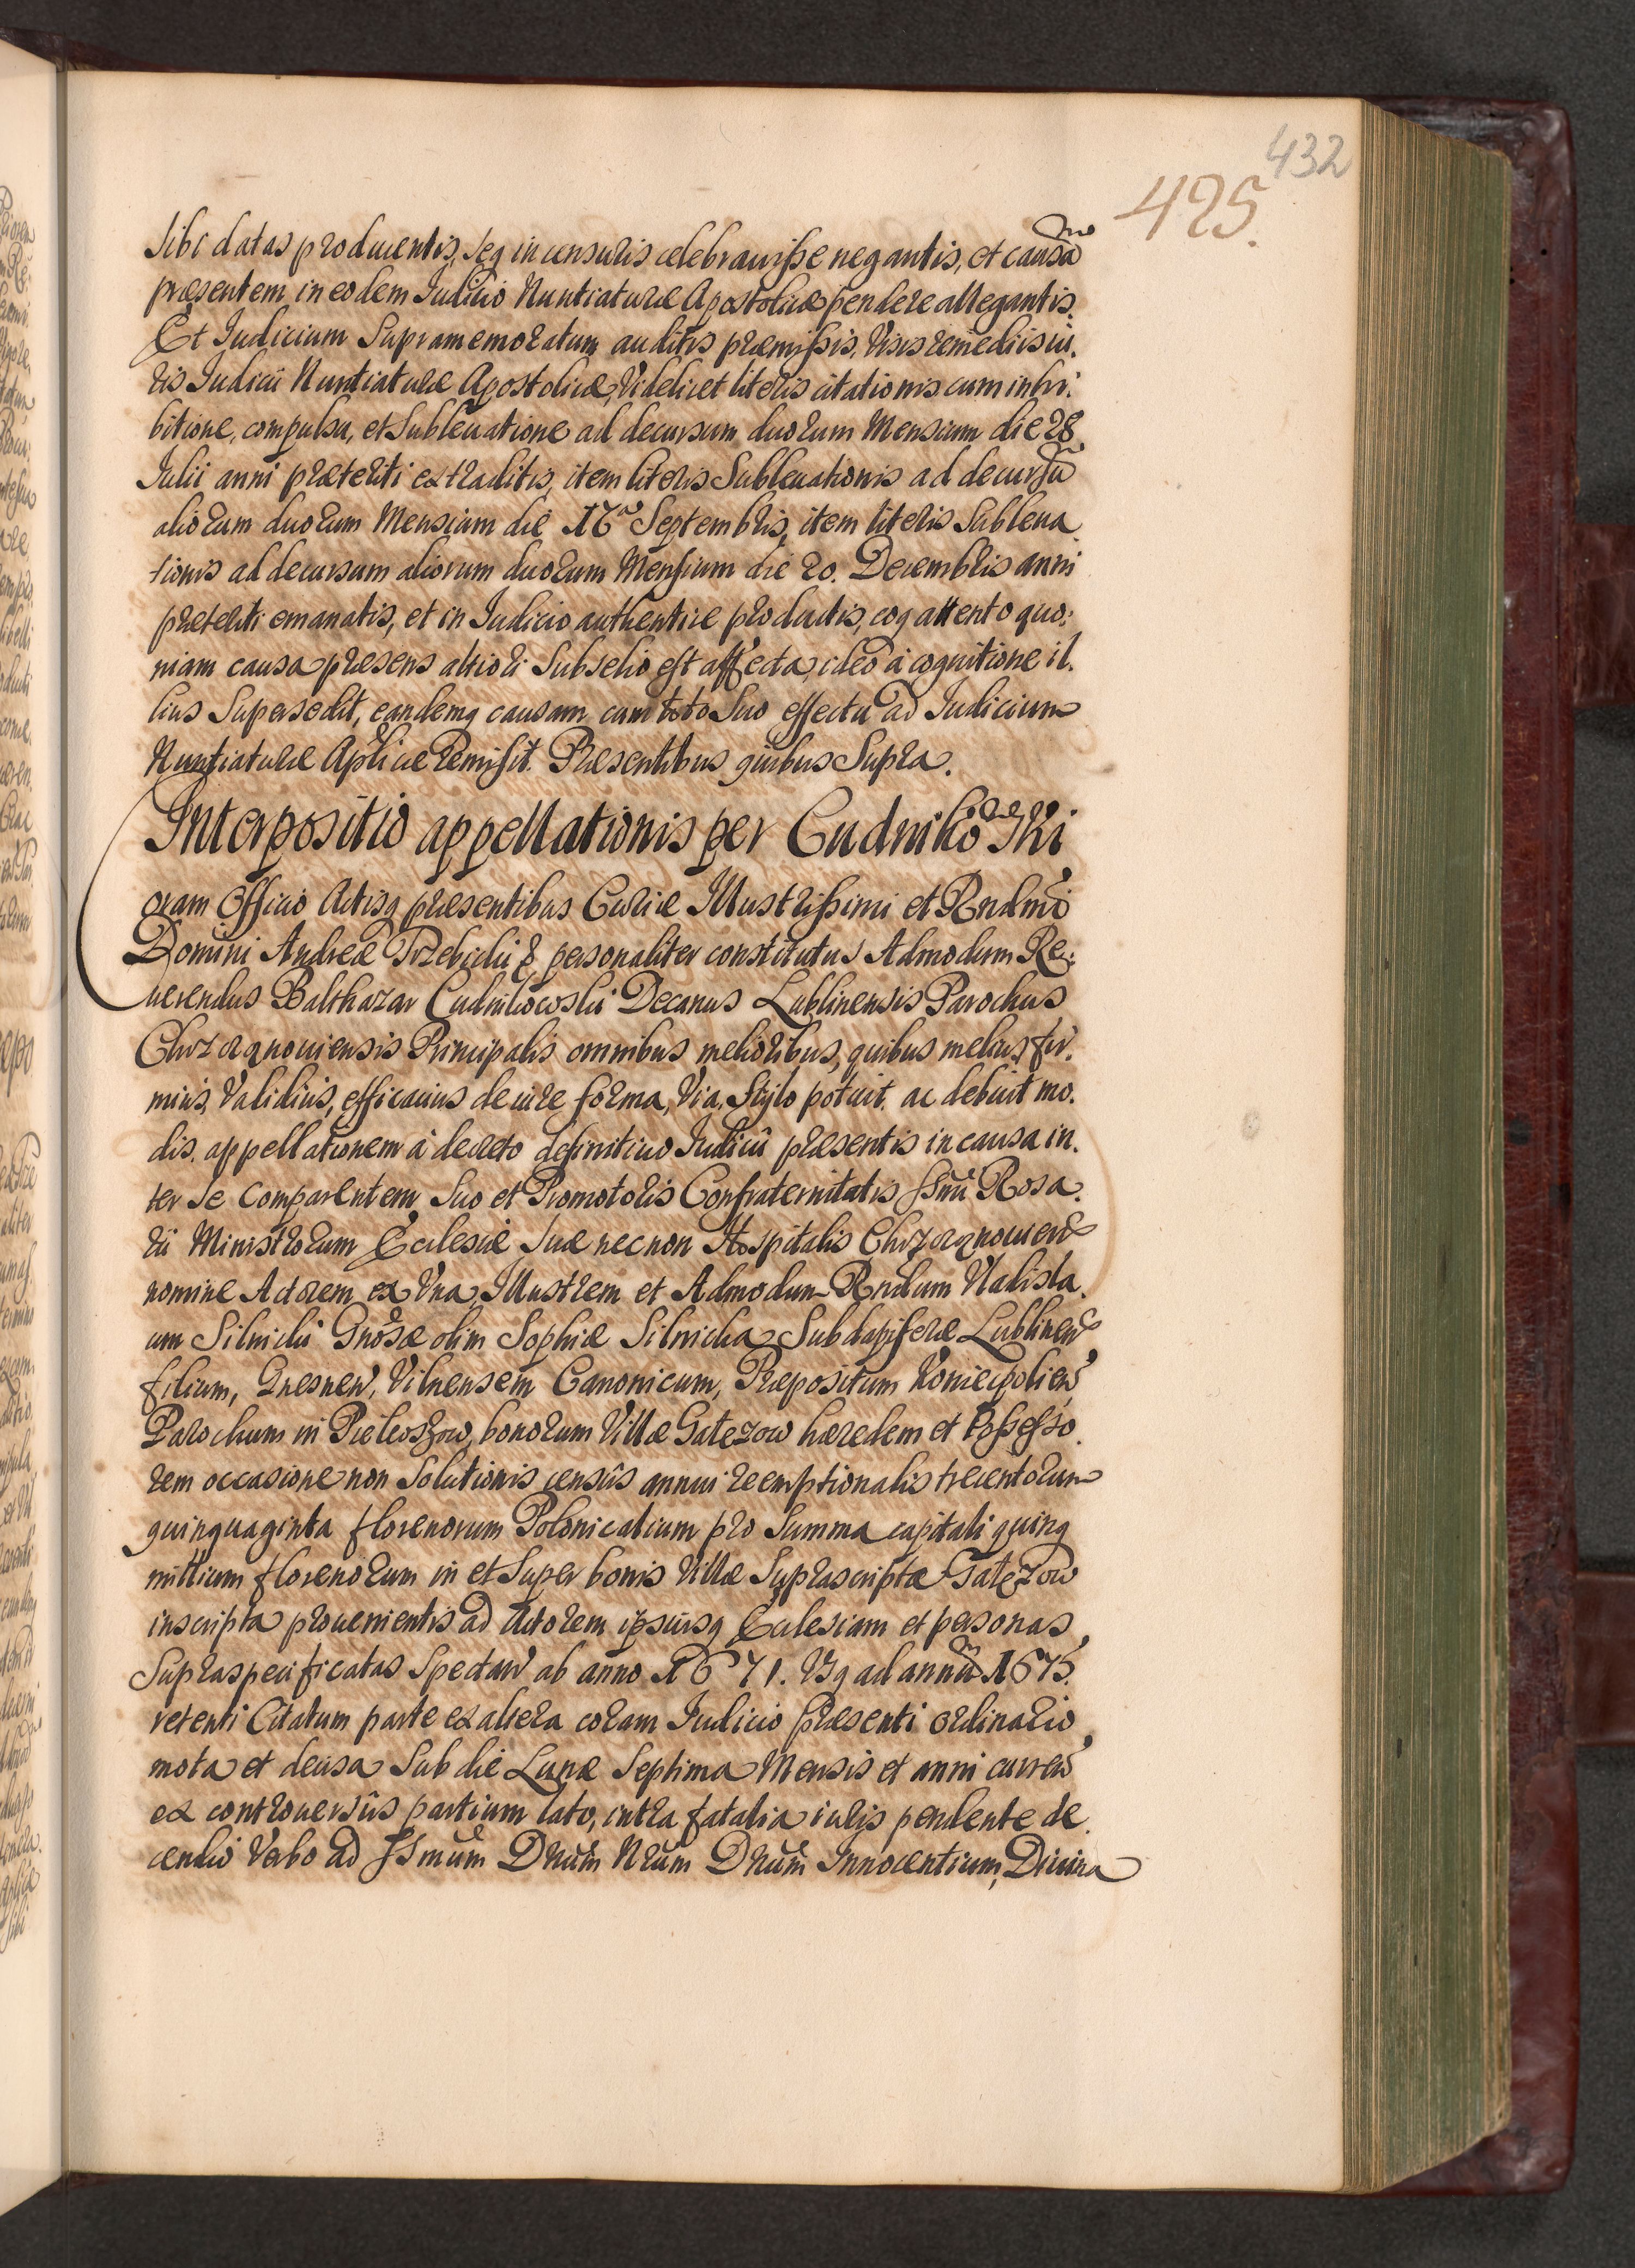 432
425.
sibi datas producentis, seq in censuris celebrauisse negantis, et causam
præsentem in eodem Judicio Nuntiaturæ Apostolicæ pendere allegantis.
Et Judicium Supramemoratum auditis præmissis, Visis remediis iu.
ris Judicii Nuntiaturæ Apostolicæ, Videlicet literis citationis cum inhi:
bitione, compulsa, et Subleuatione ad decursum duorum Mensium die 28
Julii anni præteriti extraditis, item literis Subleuationis ad decursū
aliorum duorum Mensium die Septembris, item literis Subleua
tionis ad decursum aliorum duorum Mensium die 20. Decembris anni
præteriti emanatis, et in Judicio authentice productis, eoq attento quo:
niam causa præsens altiori Subselio est affecta, ideo à cognitione il.
lius Supersedit, eandemq causam cum toto Suo effectu ad Judicium
Nuntiaturæ Aplicæ remisit. Præsentibus quibus Supra.
Interpositio appellationis per Cudnikowski
Coram Officio Actisq præsentibus Curiæ Illustrissimi et Rndmi
Domini Andreæ Trzebicki & personaliter constitutus Admodum Re:
uerendus Balthazar Cudnikowski Decanus Lublinensis Parochus
Chrząnouiensis Principalis omnibus melioribus, quibus melius, fir.
mius, Validius, efficacius de iure forma, Via, Stylo potuit ac debuit mo.
dis, appellationem à decreto definitiuo Judicii præsentis in causa in.
ter se Comparentem Suo et Promotoris Confraternitatis SSmi Rosa.
rii Ministrorum Ecclesiæ Suæ necnon Hospitalis
nomine Actorem ex Vna, Illustrem et Admodum Rndum Vladisla.
um Silnicki Gnosæ olim Sophiæ Silnicka Subdapiferæ Lublinen
filium, Gnesnen, Vilnensem Canonicum, Præpositum Koniecpolien
Parochum in bonorum Villæ Gatezow hæredem et Possesso
rem occasione non Solutionis censûs annui reemptionalis trecentorum
quinquaginta florenorum Polonicalium pro Summa capitali quinq
millium florenorum in et Super bonis Villæ Suprascriptæ Gatezow
inscripta prouenientis ad Actorem ipsiusq Ecclesiam et personas
Supraspecificatas Spectan ab anno 1671. Usq ad annum 1675
retenti Citatum parte ex altera coram Judicio præsenti ordinario
mota et decisa Sub die Lunæ Septima Mensis et anni curren
ex controuersiis partium lato, intra fatalia iuris pendente de
cendio Verbo ad SSmum Dnum Nrum Dnum Innocentium, Diuina